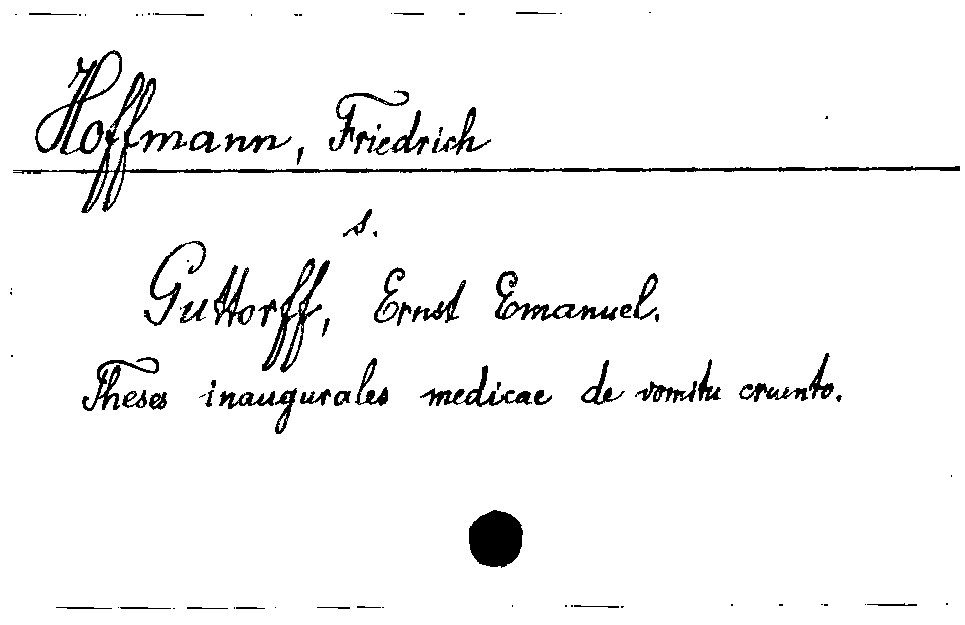 Hoffmann, Friedrich
s.
Guttorff, Ernst Emanuel.
Theses inaugurales medicae de vomitu cruento.